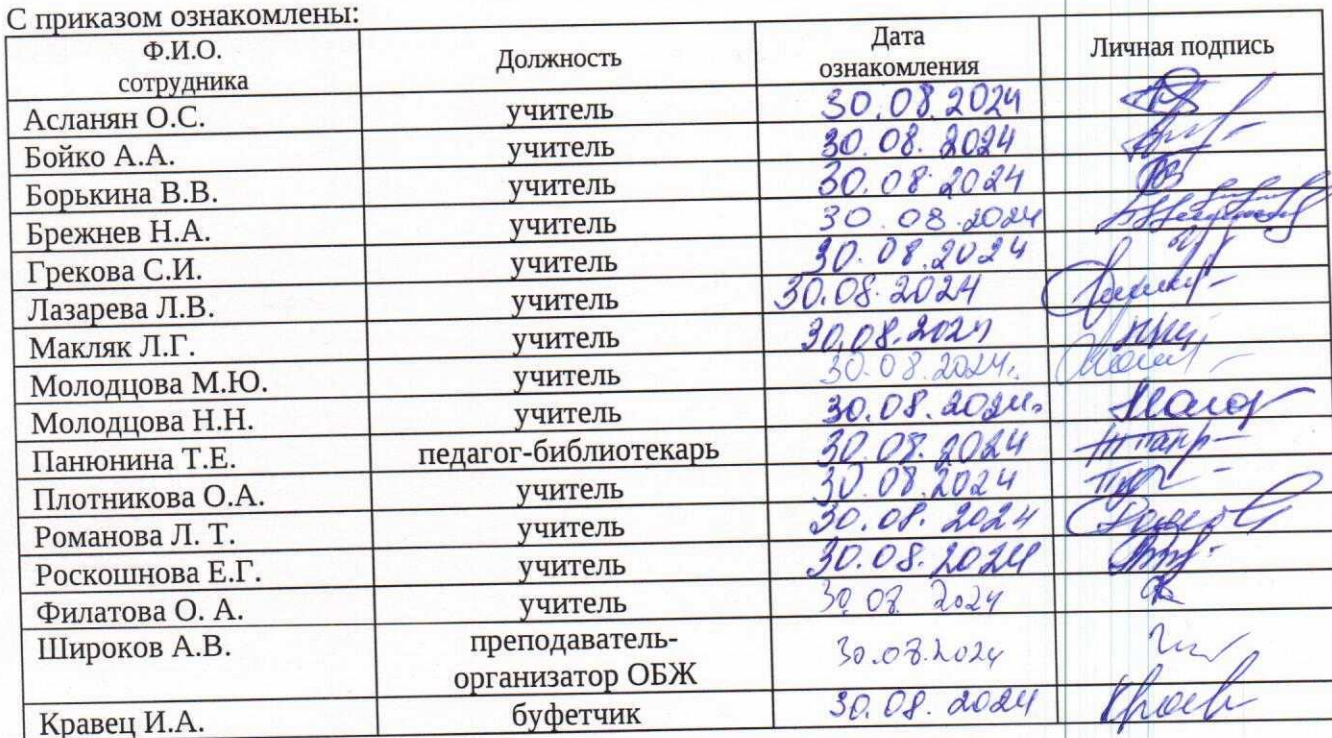 С приказом ознакомлены:
Ф.И.О. сотрудника Должность Дата ознакомления Личная подпись
Асланян О.С. учитель 30.08.2024
Бойко А.А. учитель 30.08.2024
Борькина В.В. учитель 30.08.2024
Брежнев Н.А. учитель 30.08.2024
Грекова С.И. учитель 30.08.2024
Лазарева Л.В. учитель 30.08.2024
Макляк Л.Г. учитель 30.08.2024
Молодцова М.Ю. учитель 30.08.2024г.
Молодцова Н.Н. учитель 30.08.2024г.
Панюнина Т.Е. педагог-библиотекарь 30.08.2024
Плотникова О.А. учитель 30.08.2024
Романова Л. Т. учитель 30.08.2024
Роскошнова Е.Г. учитель 30.08.2024
Филатова О. А. учитель 30.08.2024
Широков А.В. преподаватель-организатор ОБЖ 30.08.2024
Кравец И.А. буфетчик 30.08.2024